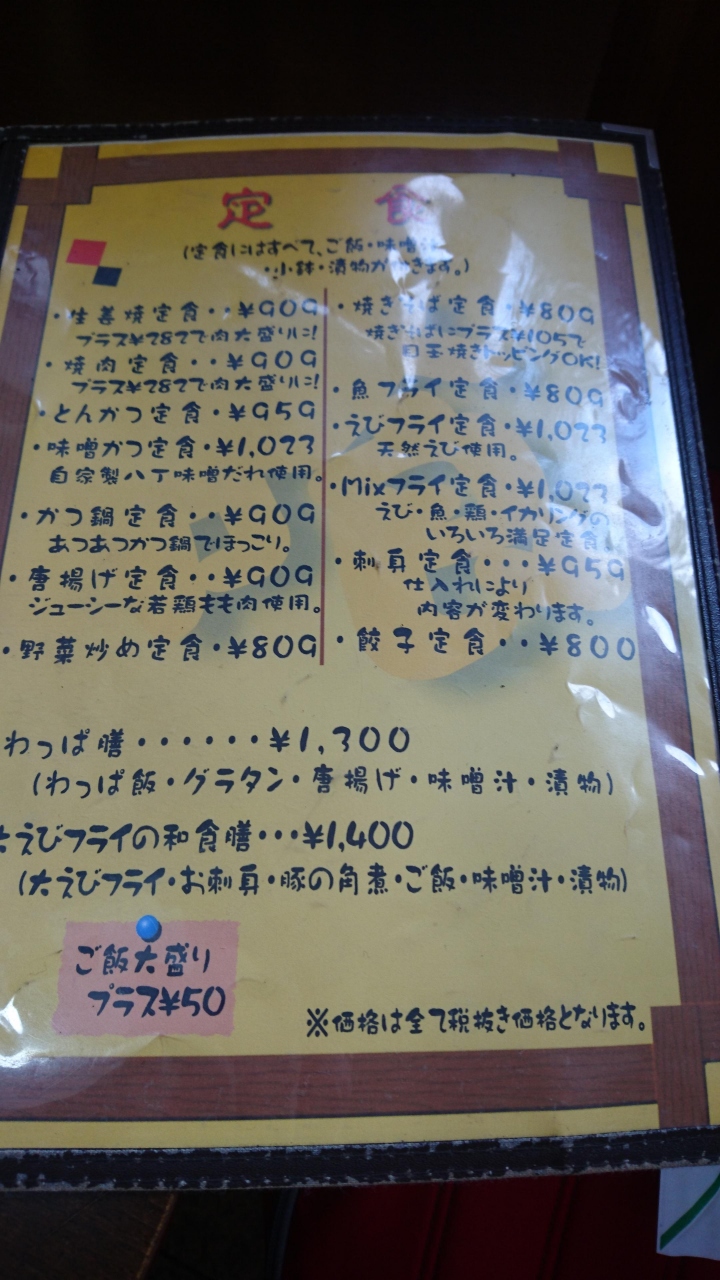 定食
(定食にはすべて、ご飯・味噌汁
・小鉢・漬物がつきます。)
・生姜焼定食・・¥909
プラス¥282で肉大盛りに!
・焼肉定食・・¥909
プラス¥282で肉大盛りに!
・とんかつ定食・¥959
・味噌かつ定食・¥1,023
自家製八丁味噌だれ使用。
・かつ鍋定食・・¥909
あつあつかつ鍋でほっこり。
・唐揚げ定食・・¥909
ジューシーな若鶏もも肉使用。
・野菜炒め定食・¥809
・焼きそば定食・¥809
焼きそばにプラス¥105で
目玉焼きトッピングOK!
・魚フライ定食・¥809
・えびフライ定食・¥1,023
天然えび使用。
・Mixフライ定食・¥1,023
えび・魚・鶏・イカリングの
いろいろ満足定食!
・刺身定食・・・¥959
仕入れにより
内容が変わります。
・餃子定食・・¥800
わっぱ膳・・・・・・¥1,300
(わっぱ飯・グラタン・唐揚げ・味噌汁・漬物)
大えびフライの和食膳・・・¥1,400
(大えびフライ・お刺身・豚の角煮・ご飯・味噌汁・漬物)
ご飯大盛り
プラス¥50
※価格は全て税抜き価格となります。